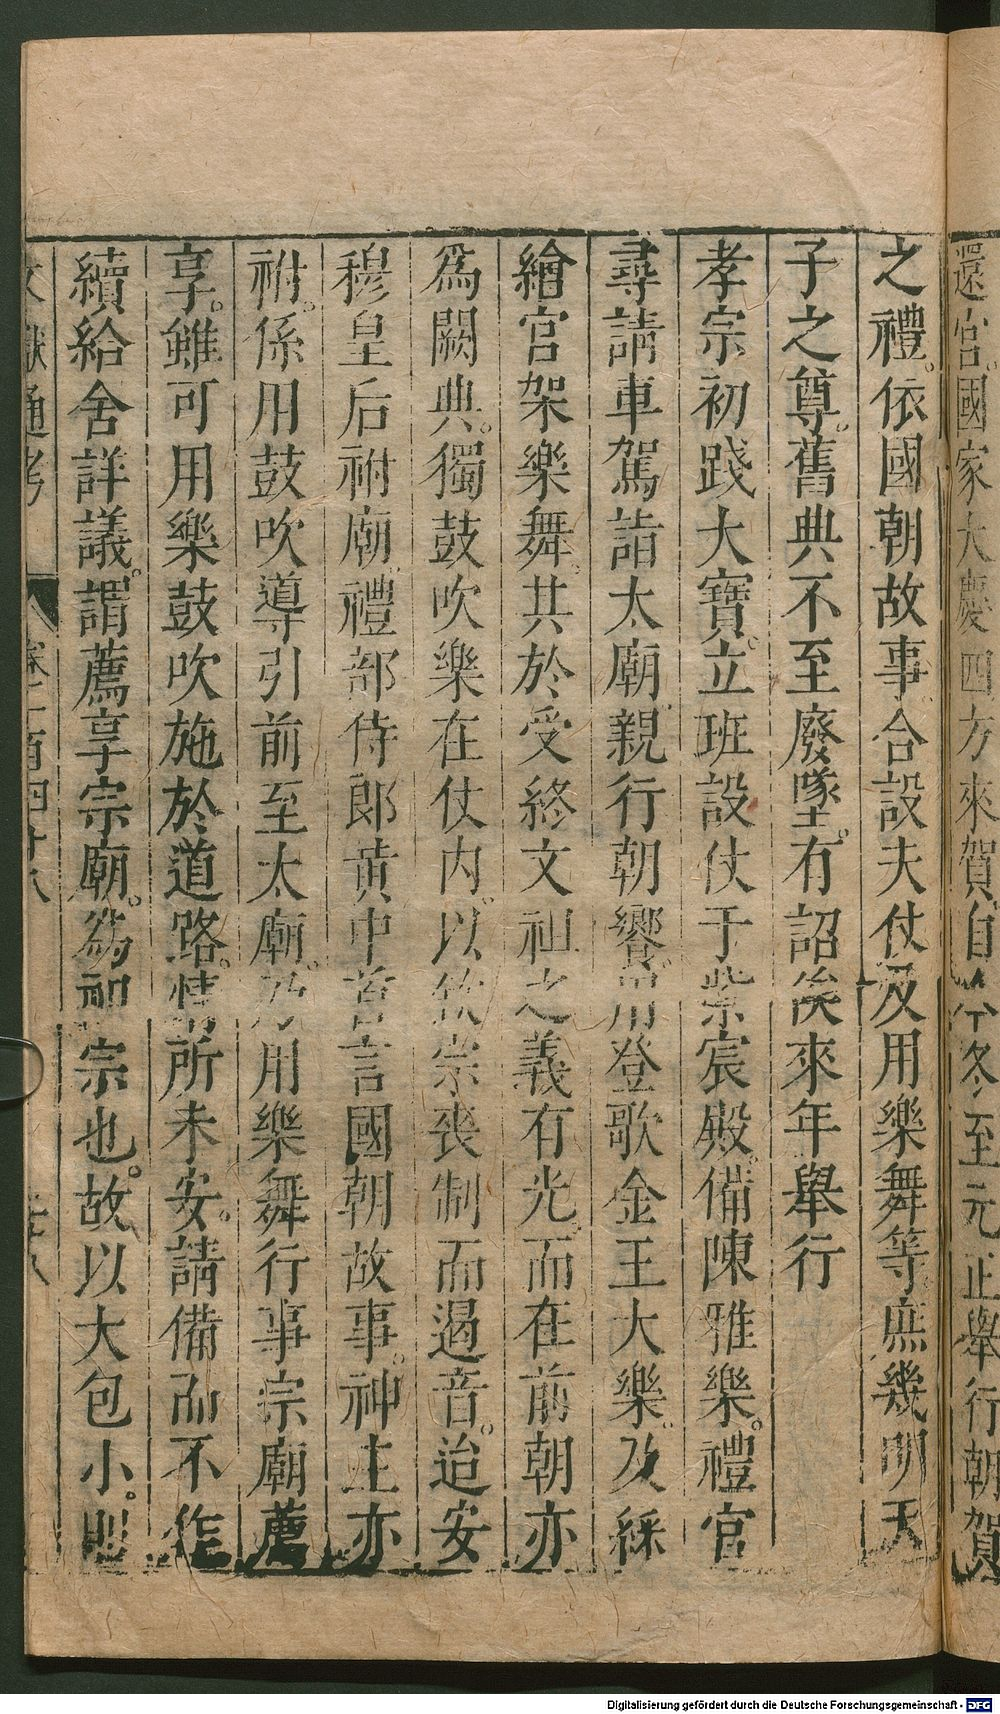 還宮。國家大慶四方來賀自今冬至元正舉行朝賀
之禮。依國朝故事合設大仗及用樂舞等庶幾明天
子之尊。舊典不至廢墜。有詔俟來年舉行
孝宗初踐大寶。立班設仗于紫宸殿。備陳雅樂。禮官
尋請車駕詣太廟親行朝饗用登歌金玉大樂。及綵
繪宮架樂舞。其於受終文祖之義有光。而在前朝亦
為闕典。獨鼓吹樂在仗內。以欽宗喪制而遏音。迨安
穆皇后祔廟。禮部侍郎黃中首言國朝故事。神主亦
祔。係用鼓吹導引前至太廟。乃用樂舞行事宗廟薦
享。雖可用樂鼓吹施於道路。情所未安。請備而不作
續給舍詳議。謂薦享宗廟。為祖宗也。故以大包小。則
文獻通考 卷一百四十八
Digitalisierung gefördert durch die Deutsche Forschungsgemeinschaft - DFG